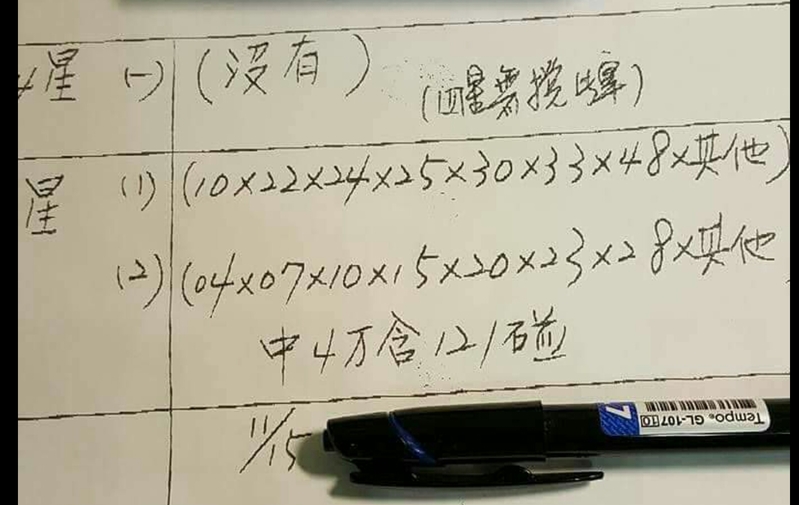 星 (一) (沒有)
(四星需攪碰)
星 (1) (10×22×24×25×30×33×48×其他)
(2) (04×07×10×15×20×23×28×其他
中4万含121碰
11/15
Tempo® GL-107 10
7